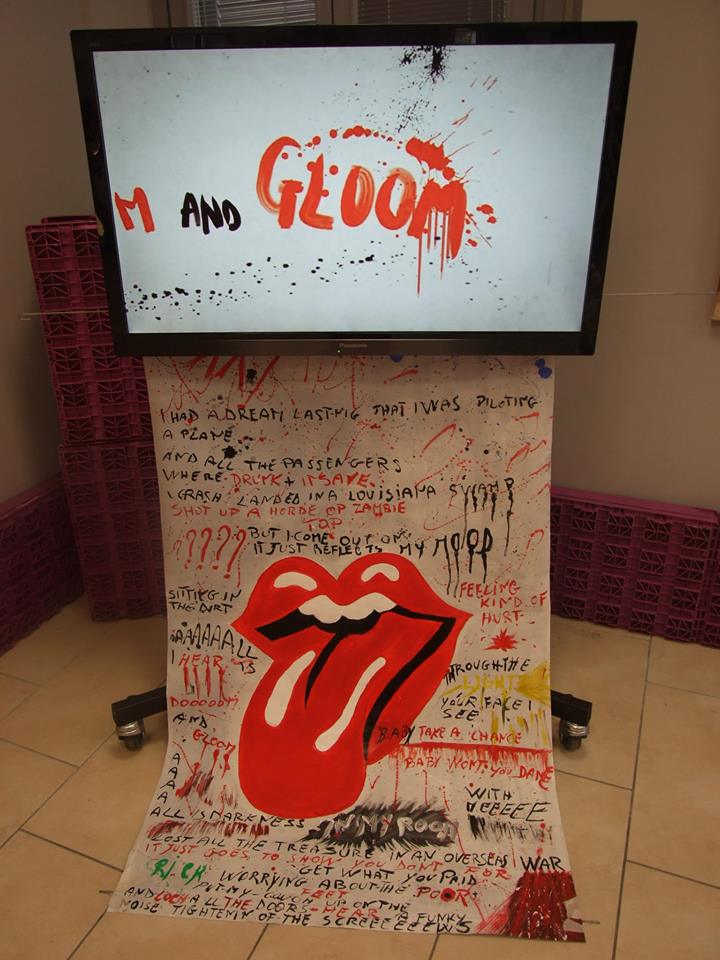 M AND GLOOM
Panasonic
I HAD A DREAM LAST NIG THAT I WAS PILOTING
A PLANE
AND ALL THE PASSENGERS
WHERE DRUNK + INSANE
I CRASH LANDED IN A LOUISIANA SWAMP
SHOT UP A HORDE OF ZAMBIE
TOP
BUT I COME OUT ON
???? IT JUST REFLECTS MY MOOD
SITTING IN
THE DIRT
FEELING
KIND OF
HURT
AAAAAALL
I HEAR IS
DOOOOOM
AND
GLOOM
THROUGH THE
LIGHT
YOUR FACE I
SEE
BABY TAKE A CHANCE
BABY WON'T YOU DANE
WITH
A
A
A
A
ALL IS DARKNESS IN MY ROOM
LOST ALL THE TREASURE IN AN OVERSEAS WAR
IT JUST GOES TO SHOW YOU DON'T FOR
GET WHAT YOU PAID
RICH WORRYING ABOUT THE POOR
PUT MY FEET UP ON THE
AND LOCH ALL THE DOORS HEAR A FUNKY
NOISE TIGHTENIN OF THE SCREEEEEEWS